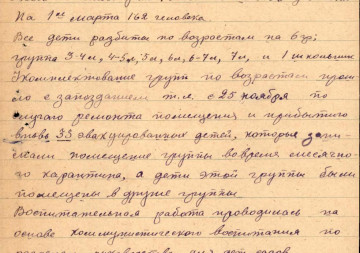 На 1ое марта 162 человека.
Все дети разбиты по возрастам на 6 гр;
группа 3-4л, 4-5л, 5л, 6л, 6-7л, 7л, и 1 школьни
Укомплектование групп по возрастам прош
ло с запозданием т.к. с 25 ноября по
случаю ремонта помещения и прибытию
вновь 33 эвакуированных детей, которые зани
мали помещение группы во время месячно
го карантина, а дети этой группы были
помещены в другие группы
Воспитательная работа проводилась на
основе коммунистического воспитания по